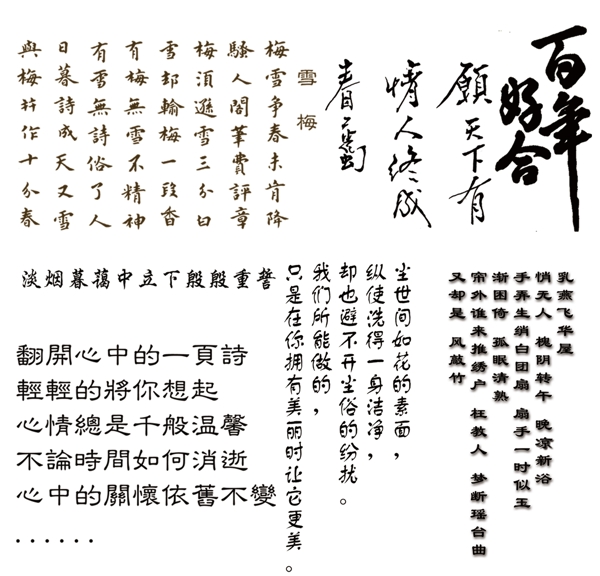 百年
好合
願天下有
情人終成
眷屬
雪梅
梅雪争春未肯降
騷人閣筆費評章
梅須遜雪三分白
雪却輸梅一段香
有梅無雪不精神
有雪無詩俗了人
日暮詩成天又雪
與梅并作十分春
淡烟暮藹中立下殷殷重誓
翻開心中的一頁詩
輕輕的將你想起
心情總是千般溫馨
不論時間如何消逝
心中的關懷依舊不變
......
尘世间如花的素面，
纵使洗得一身洁净，
却也避不开尘俗的纷扰。
我们所能做的，
只是在你拥有美丽时让它更美。
乳燕飞华屋
悄无人 槐阴转午 晚凉新浴
手弄生绡白团扇 扇手一时似玉
渐困倚 孤眠清熟
帘外谁来推绣户 枉教人 梦断瑶台曲
又却是 风敲竹